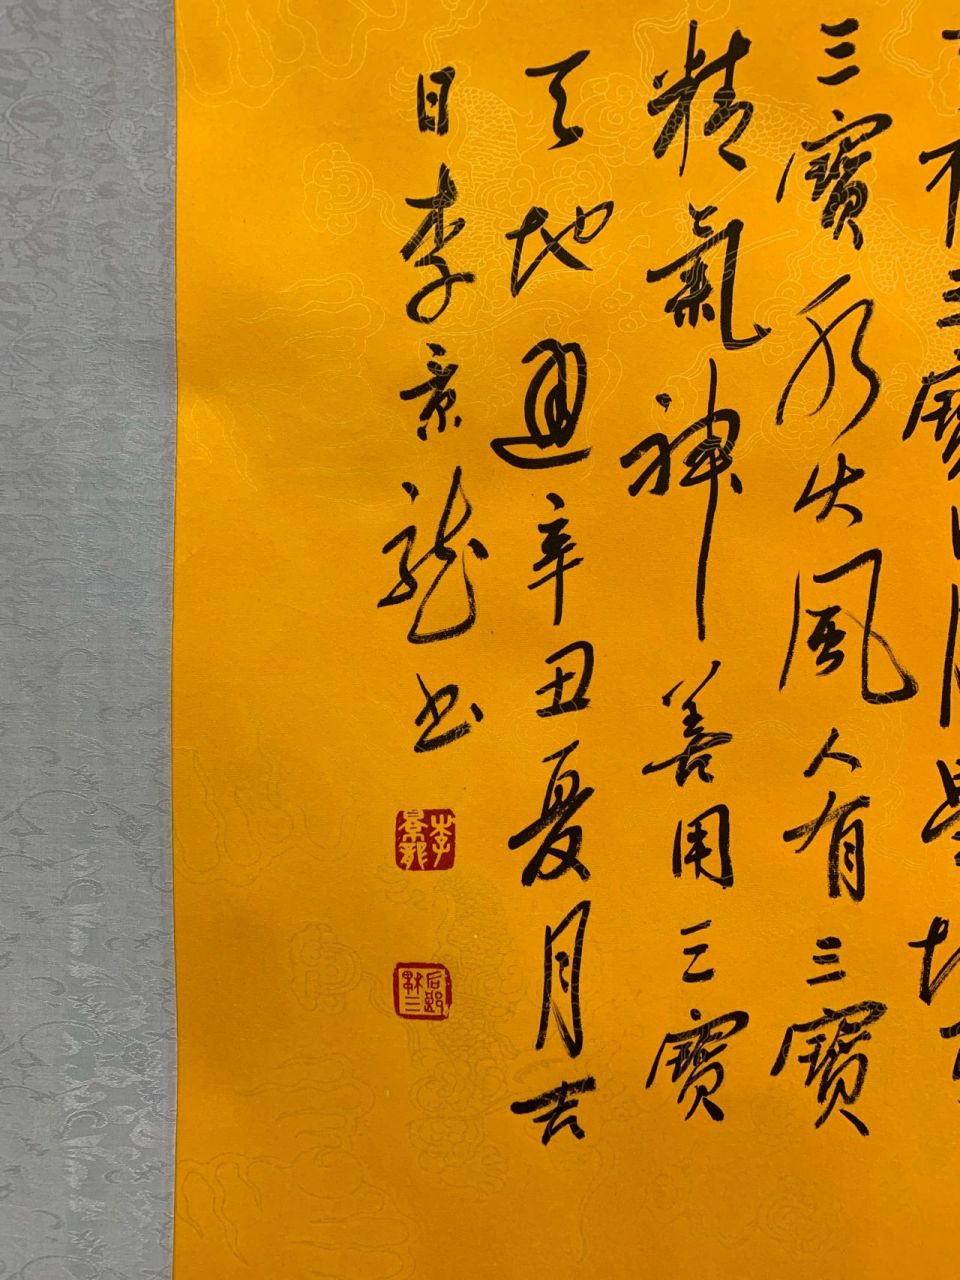 有三寶日月星地有
三寶水火風人有三寶
精氣神善用三寶
天地通辛丑夏月吉
日李景龍书
李景龍